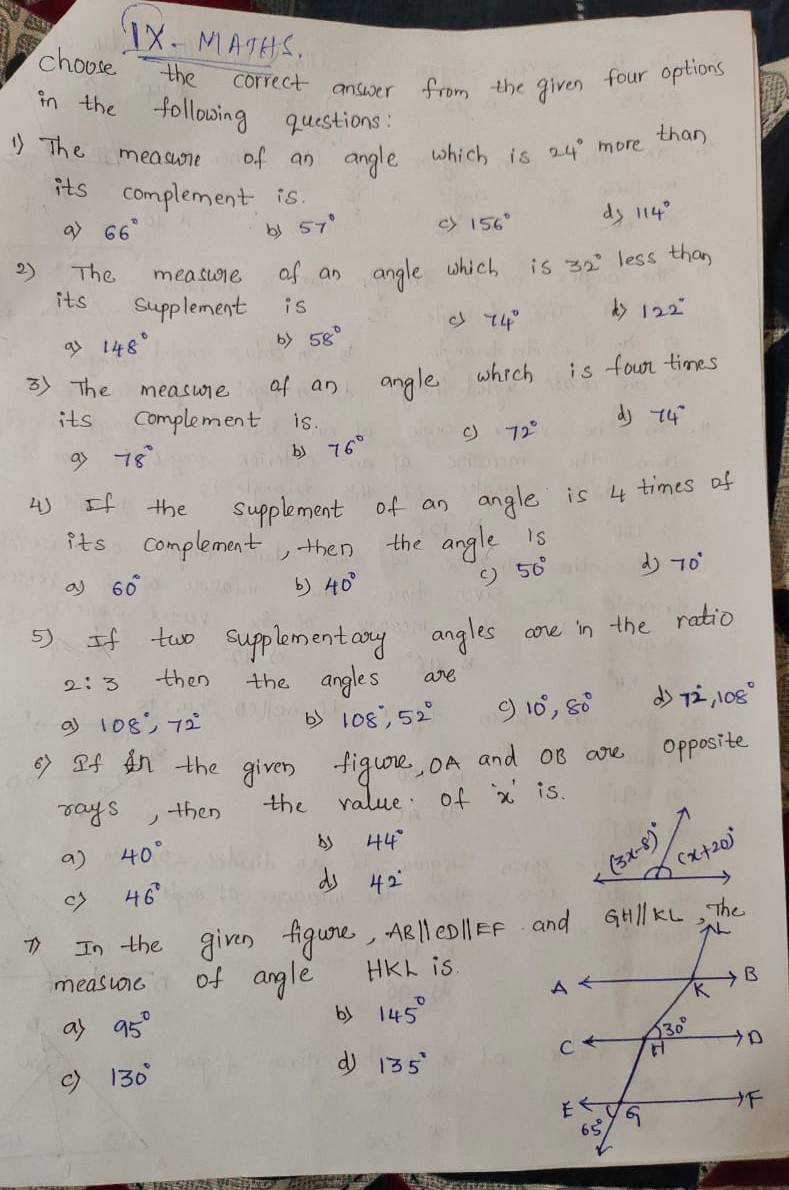 IX - MATHS.
Choose the correct answer from the given four options
in the following questions:
1) The measure of an angle which is 24° more than
its complement is.
a) 66° b) 57° c) 156° d) 114°
2) The measure of an angle which is 32° less than
its supplement is
a) 148° b) 58° c) 74° d) 122°
3) The measure of an angle which is four times
its complement is.
a) 78° b) 76° c) 72° d) 74°
4) If the supplement of an angle is 4 times of
its complement, then the angle is
a) 60° b) 40° c) 50° d) 70°
5) If two supplementary angles are in the ratio
2:3 then the angles are
a) 108°, 72° b) 108°, 52° c) 10°, 80° d) 72°, 108°
6) If in the given figure, OA and OB are opposite
rays, then the value of 'x' is.
a) 40° b) 44°
c) 46° d) 42°
(3x-8)° (x+20)°
7) In the given figure, AB||CD||EF and GH||KL, The
measure of angle HKL is.
a) 95° b) 145°
c) 130° d) 135°
L
A K B
30°
C H D
E G F
65°